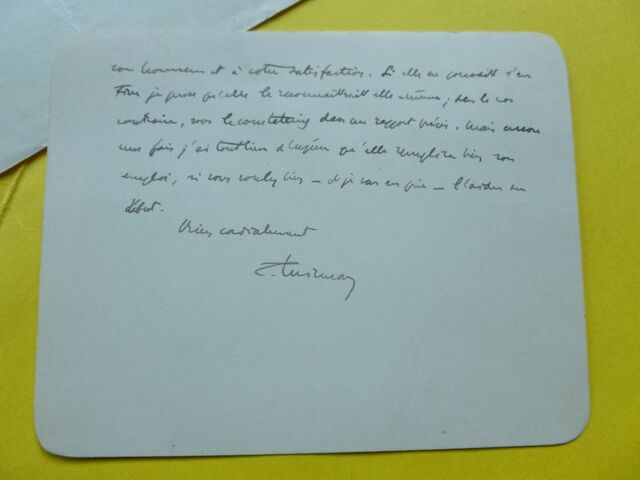 et à votre satisfaction. Si elle ne pouvait s'en
je pense qu'elle le reconnaîtrait elle-même; dans le cas
contraire, vous le dans un rapport précis. Mais encore
une fois j'ai tout lieu d'espérer qu'elle remplira bien son
emploi, si vous voulez bien — et je vous en prie — l'aider au
début.
Bien cordialement